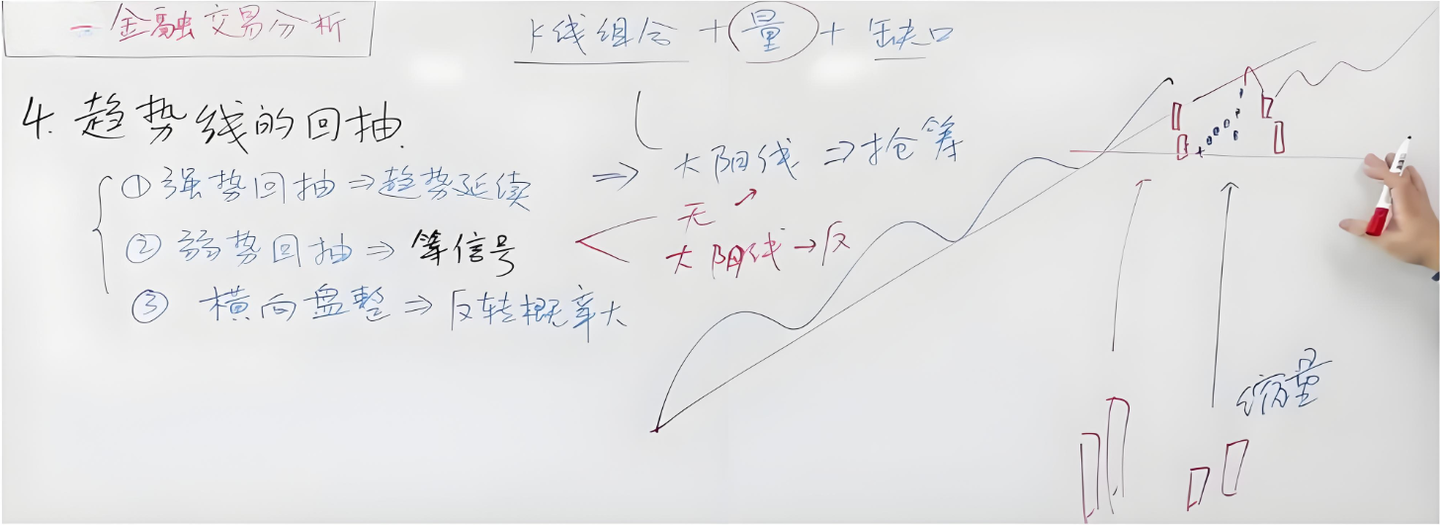 一金融交易分析
K线组合+量+缺口
4.趋势线的回抽.
①强势回抽⇒趋势延续
②弱势回抽⇒等信号
③横向盘整⇒反转概率大
⇒大阳线⇒抢筹
无↗
大阳线→反
缩量